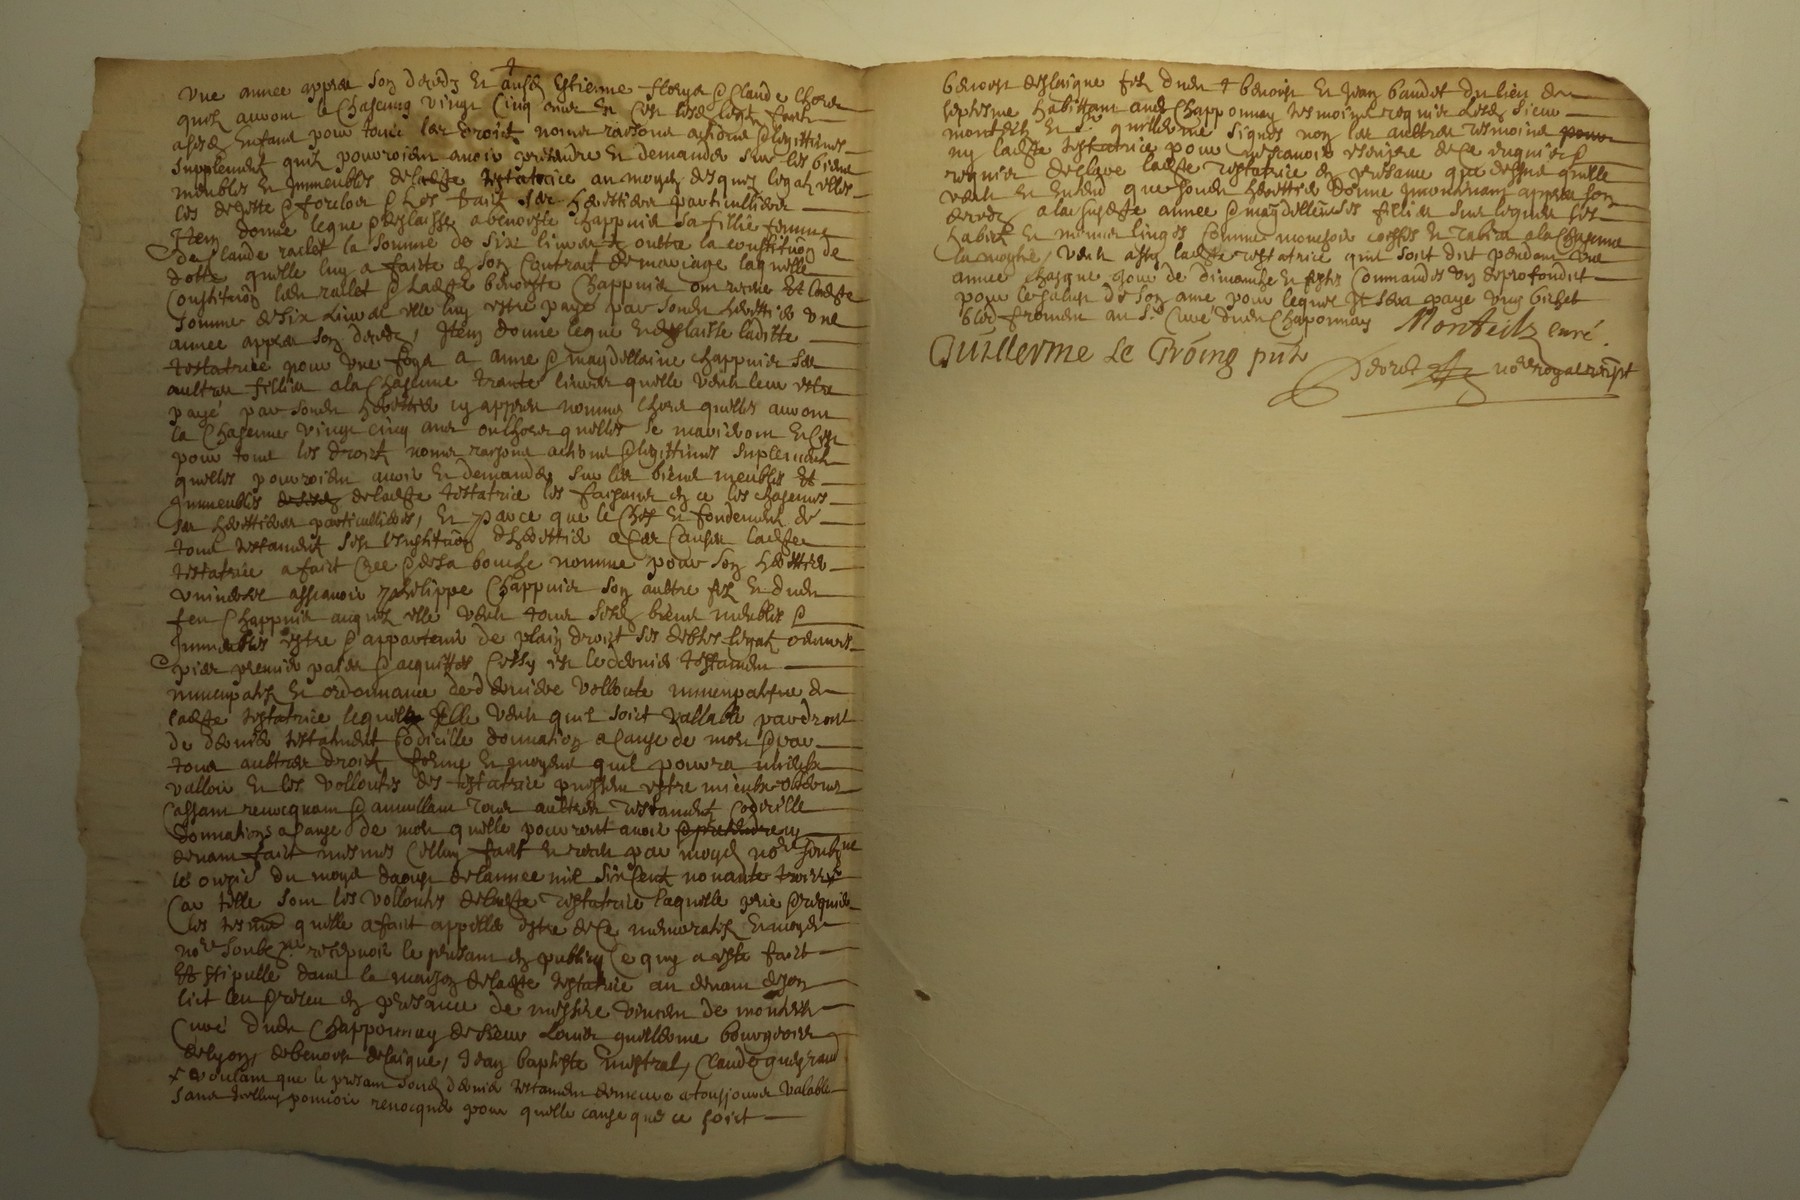 Une annee appres son deceds et ausd Estienne florys & Claude lhors
quilz auront le Chascung vingt Cinq ans et
pour tous les droictz noms raisons actions & legittimes
supplement quilz pourroient avoir pretendre et demander sur les biens
meubles et immeubles de ladte testatrice au moyen desquelz legatz elle
les dejette & forclos & les faict ses herettiers particulliers
Item donne legue & deslaisse a benoiste Chappuis sa fillie femme
de Claude raclet la somme de six livres outre la constituon de
dotte quelle luy a faicte en son Contract de mariage laquelle
Constituon led raclet & ladte benoiste Chappuis ont receue Et ladte
somme de six livres elle luy estre paye par sond herettier une
annee appres son deceds, Item donne legue et deslaisse laditte
testatrice pour une foys a anne & magdellaine Chappuis ses
aultres fillies a la Chascune trante livres quelle veult leur estre
paye par sond herettier cy appres nomme lhors quelles auront
la Chascune vingt cinq ans ou lhors quelles se marieront
pour tous les droictz noms raisons actions & legittimes suplement
quelles pourroient avoir et demander sur les biens meubles Et
immeubles de ladte testatrice les faisant en ce les chascunes
ses herettieres particullieres, et parce que le Chef et fondement de
tout testament est linstituon dherettier a Ces Causes ladte
testatrice a faict Cree & de sa bouche nomme pour son herettier
universel assavoir philippe Chappuis son aultre filz et dud
feu Chappuis auquel elle veult tous sesd biens meubles &
immeubles estre & appartenir de plain droict ses debtes legatz
prealablement payes & acquittes Cessy est le dernier testament
nuncupatif et ordonnance de derniere vollonte nuncupative de
ladte testatrice lequel Elle veult quil soict vallable par droict
de dernier testament Codicille donnation a Cause de mort & par
tous aultres droictz forme et moyens quil pourra mieulx
valloir et les vollontes des testatrice puissent estre mieulx
Cassant revocquant & annullant tous aultres testament Codicille
donnations a Cause de mort quelle pourroit avoir
devant faict mesmes Celluy faict et receu par moyd nore soubzne
le onzie du moys daoust de lannee mil six Cent nonante trois
Car telle sont les vollontes de ladte testatrice laquelle prie & requier
les tesmz quelle a faict appeller destre de Ce memoratifz et moyd
nore soubzne recepvoir le presant en public Ce quy a este faict
Et stipulle dans la maison de ladte testatrice au devant de son
lict en presance de messire vincen de monteilh
Cure dud Chapponnay de sieur Louis guillerme bourgeois
de lyon, de benoist delaigue, Jean baptiste mestral, Claude
voulant que le presant sond dernier testament demeure a tousjours valable
sans pouvoir revocque pour quelle cause que ce soict
benoist delaigue filz dud + benoist et Jean baudet du lieu de
habittant aud Chapponnay tesmoins requis lesd sieur
monteilh et Sr guillerme signes non les aultres tesmoins
ny ladte testatrice pour ne scavoir escripre de Ce enquis &
requis declare ladte testatrice en presance que dessus quelle
veult et entend que sond herettier donne appres son
deceds a la susdte anne & magdelleine ses fillies
habitz et menus linges Comme a la Chascune
la moytie, veult aussy ladte testatrice quil soit dict pendant une
annee Chasque jour de dimanche et festes Commandes ung de profondict
pour le salut de son ame pour lequel Il sera paye ung bichet
bled froment au Sr Cure dud Chaponnay Monteilz curé.
Guillerme Le Groing pnt
nore royal